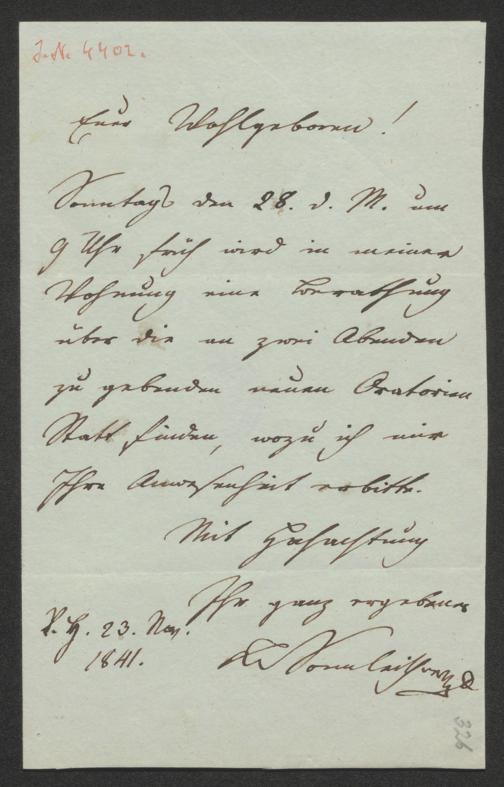 J. N. 4402.
Euer Wohlgeboren!
Sonntags den 28. d. M. um
9 Uhr früh wird in meiner
Wohnung eine Berathung
über die an zwei Abenden
zu gebenden neuen Oratorien
Statt finden, wozu ich mir
Ihre Anwesenheit erbitte.
Mit Hochachtung
Ihr ganz ergebener
V. H. 23. Nov.
1841.
Sonnleithner
326